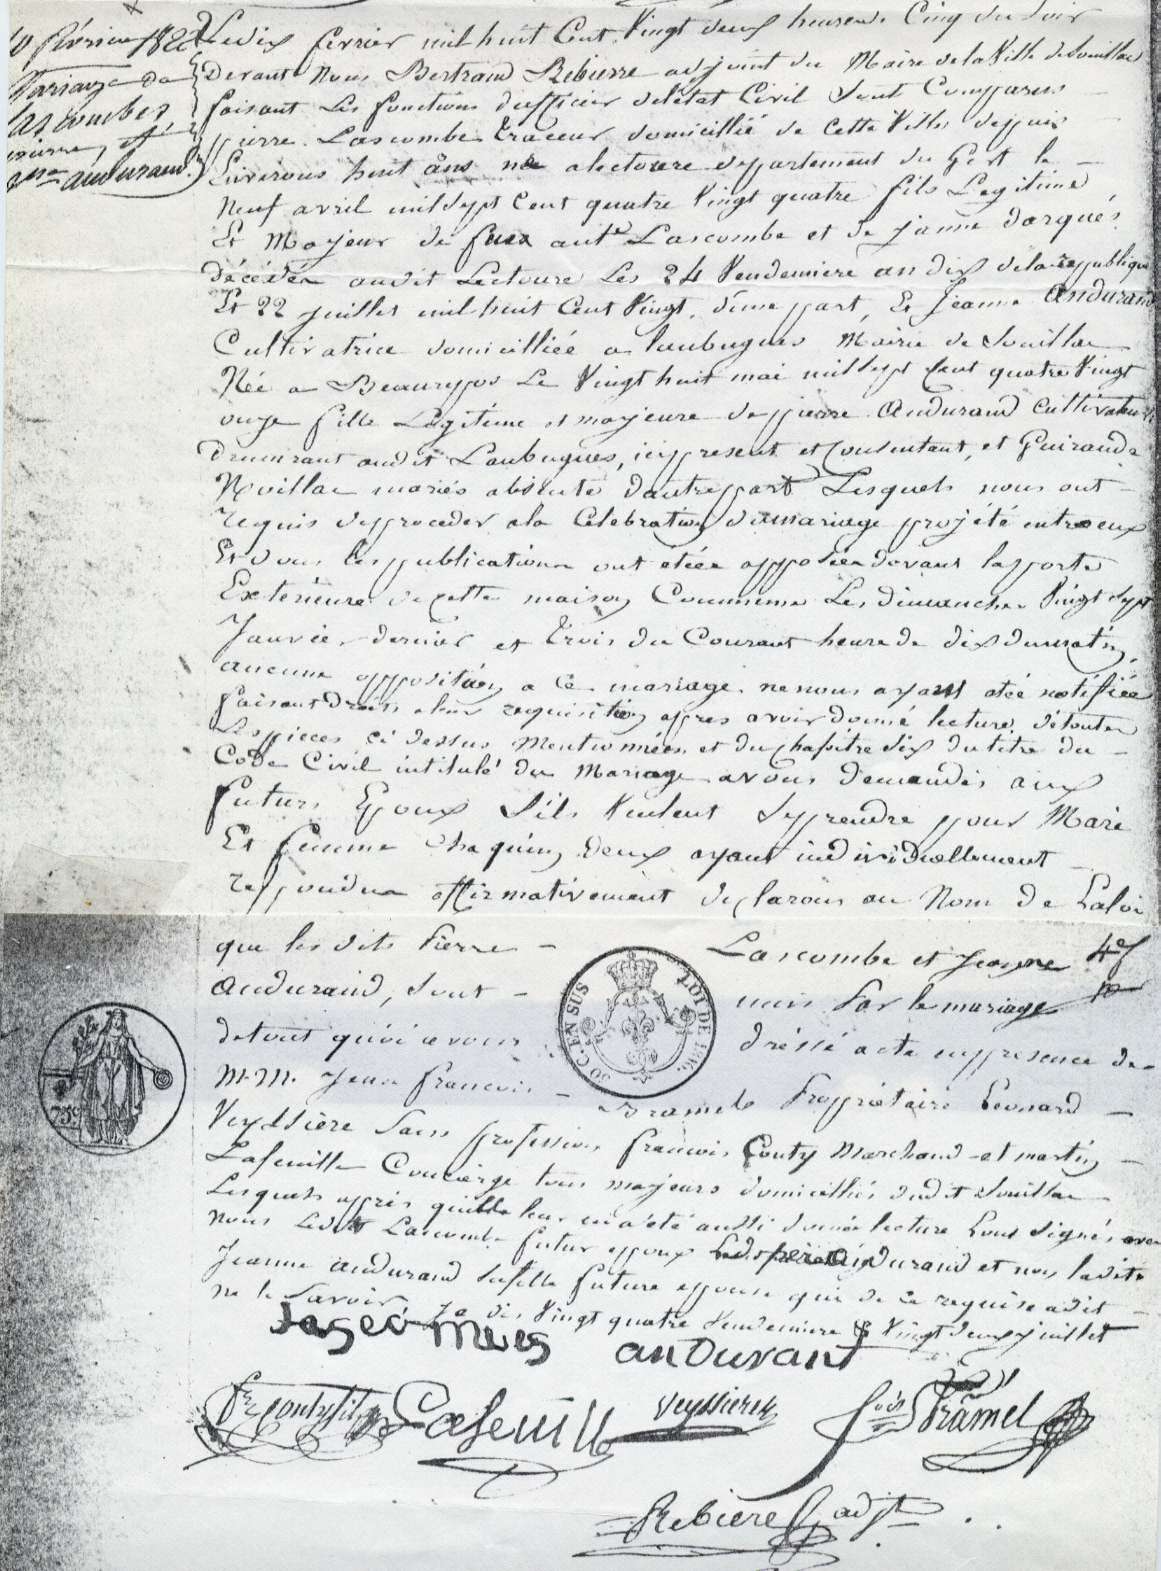 10 février 1822
Mariage de
Lascombes
pierre, et
Jne anduraud.
Le dix fevrier mil huit Cent Vingt deux heure de Cinq du Soir
Devant Nous Bertrand Rebierre adjoint du Maire de la Ville de Souillac
faisant Les fonctions d'officier deletat Civil Sont Comparus
pierre Lascombe traceur domicillié de Cette Ville depuis
Environs huit ans né a lectoure departement du Gert le
Neuf avril mil sept Cent quatre Vingt quatre fils Legitime
Et Majeur de feux ante Lascombe et de jeanne darqués
décédés audit Lectoure Les 24 Vendemiere an dix de la republique
Et 22 juillet mil huit Cent Vingt, d'une part, Et Jeanne Anduraud
Cultivatrice domicilliée a laubugues Mairie de Souillac
Née a Beaurepos Le Vingt huit mai mil sept Cent quatre Vingt
onze fille Légitime et majeure de pierre Anduraud Cultivateur
Demurant audit Laubugues, ici present et Consentant, et Guiraude
Noillac mariés absente d'autre part Lesquels nous ont
requis de proceder a la Celebration du mariage projété entre eux
Et dont les publications ont étée apposées devant la porte
Exterieure de cette maison Commune Les dimanches Vingt Sept
Janvier dernier et trois du Courant heure de dix du matin,
aucune opposition a ce mariage ne nous ayant étée notifiée
faisant Droits a leur requisition apres avoir donné lecture de toutes
Les pieces ci dessus mentionnées et du chapitre Six du titre du
Code Civil intitulé du Mariage avons demandés aux
futurs Epoux S'ils Veulent Se prendre pour Mari
Et femme Chaquin d'eux ayant individuellement
repondu affirmativement declarons au Nom de La loi
que les dits Pierre Lascombe et Jeanne
Anduraud, Sont unis Par le mariage
de tout quoi avons dréssé acte en presence de
M.M. Jean francois Bramel Propriétaire Leonard
Veyssière Sans profession francois Conty Marchand et martin
Lafeuille Concierge tous majeurs domicilliés dudit Souillac
Lesquels apprés quil leur en a été aussi donnée lecture Lont Signés avec
nous Ledit Lascombe futur epoux Ledit pere Anduraud et non ladite
Jeanne anduraud Safille future epouse qui de ce requise adit
ne le Savoir dix Vingt quatre Vendemiere & Vingt deux juillet
anDurant
fs conty fils
Lafeuille
Veyssiere
fois Bramel
Rebiere adjt
LOI DE 1816
50 C. EN SUS